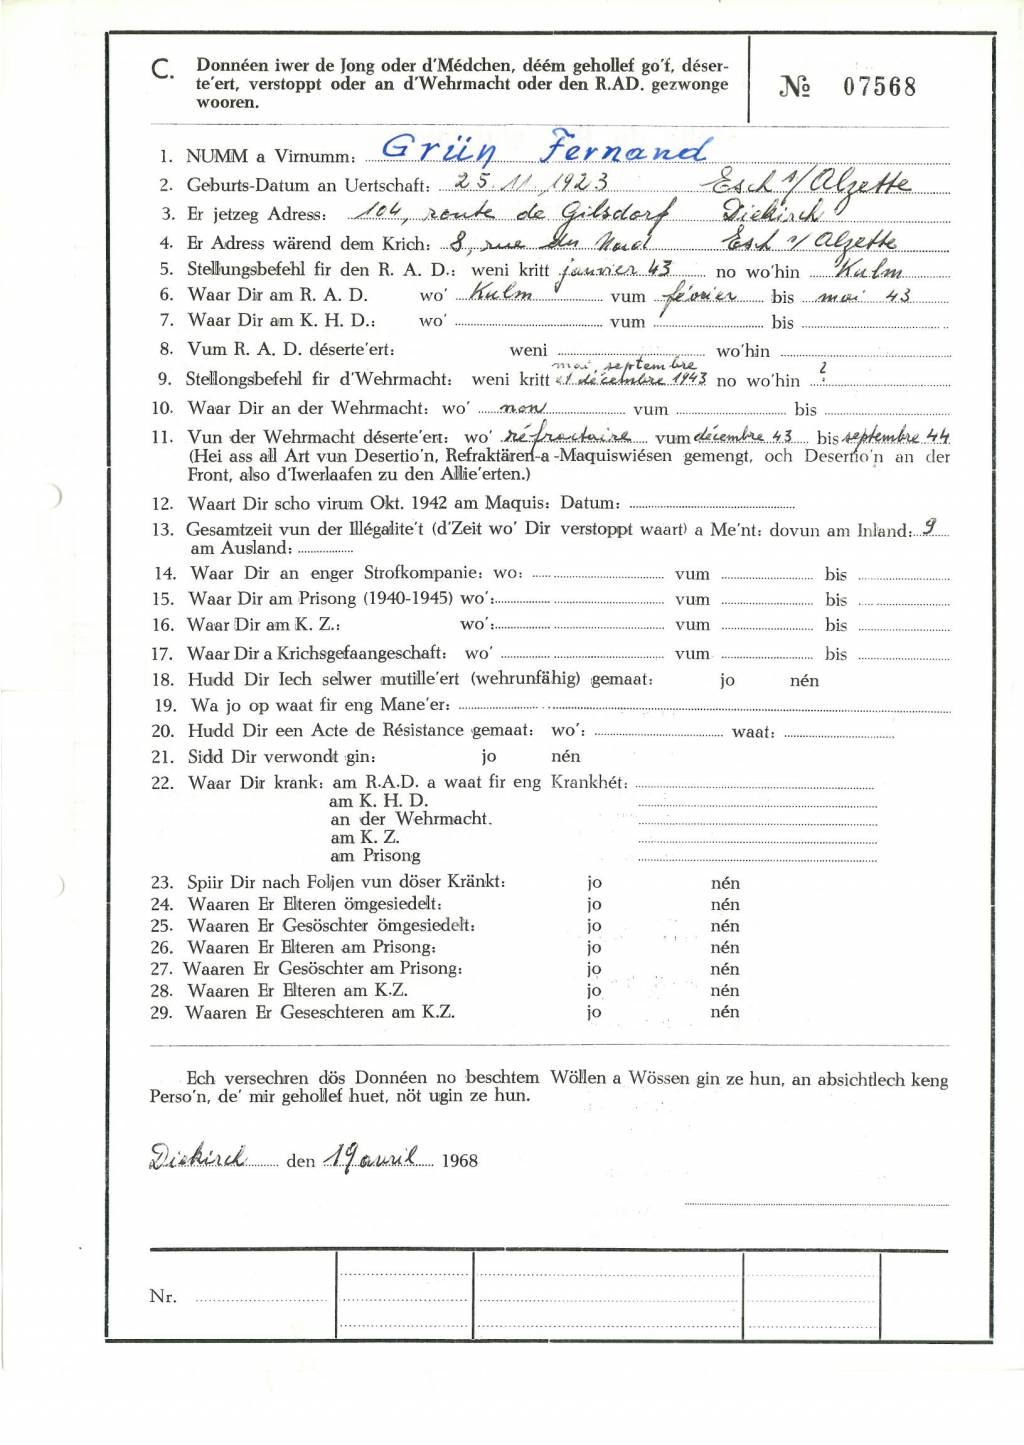 C. Donnéen iwer de Jong oder d'Médchen, déém gehollef go'f, déser-
te'ert, verstoppt oder an d'Wehrmacht oder den R.AD. gezwonge
wooren.
№ 07568
1. NUMM a Virnumm: Grün Fernand
2. Geburts-Datum an Uertschaft: 25.11.1923 Esch s/Alzette
3. Er jetzeg Adress: 104, route de Gilsdorf Diekirch
4. Er Adress wärend dem Krich: 8, rue du Nord Esch s/Alzette
5. Stellungsbefehl fir den R. A. D.: weni kritt janvier 43 no wo'hin Kulm
6. Waar Dir am R. A. D. wo' Kulm vum février bis mai 43
7. Waar Dir am K. H. D.: wo' vum bis
8. Vum R. A. D. déserte'ert: weni wo'hin
mai, septembre
9. Stellongsbefehl fir d'Wehrmacht: weni kritt et décembre 1943 no wo'hin ?
10. Waar Dir an der Wehrmacht: wo' non vum bis
11. Vun der Wehrmacht déserte'ert: wo' réfractaire vum décembre 43 bis septembre 44
(Hei ass all Art vun Desertio'n, Refraktären-a-Maquiswiésen gemengt, och Desertio'n an der
Front, also d'Iwerlaafen zu den Allie'erten.)
12. Waart Dir scho virum Okt. 1942 am Maquis: Datum:
13. Gesamtzeit vun der Illégalite't (d'Zeit wo' Dir verstoppt waart) a Me'nt: dovun am Inland: 9
am Ausland:
14. Waar Dir an enger Strofkompanie: wo: vum bis
15. Waar Dir am Prisong (1940-1945) wo': vum bis
16. Waar Dir am K. Z.: wo': vum bis
17. Waar Dir a Krichsgefaangeschaft: wo' vum bis
18. Hudd Dir Iech selwer mutille'ert (wehrunfähig) gemaat: jo nén
19. Wa jo op waat fir eng Mane'er:
20. Hudd Dir een Acte de Résistance gemaat: wo': waat:
21. Sidd Dir verwondt gin: jo nén
22. Waar Dir krank: am R.A.D. a waat fir eng Krankhét:
am K. H. D.
an der Wehrmacht.
am K. Z.
am Prisong
23. Spiir Dir nach Foljen vun döser Kränkt: jo nén
24. Waaren Er Elteren ömgesiedelt: jo nén
25. Waaren Er Gesöschter ömgesiedelt: jo nén
26. Waaren Er Elteren am Prisong: jo nén
27. Waaren Er Gesöschter am Prisong: jo nén
28. Waaren Er Elteren am K.Z. jo nén
29. Waaren Er Geseschteren am K.Z. jo nén
Ech versechren dös Donnéen no beschtem Wöllen a Wössen gin ze hun, an absichtlech keng
Perso'n, de' mir gehollef huet, nöt ugin ze hun.
Diekirch den 19 avril 1968
Nr.